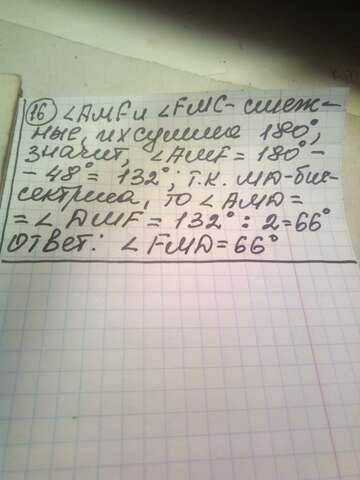 16 ∠AMF и ∠FMC - смеж-
ные, их сумма 180°,
значит, ∠AMF = 180° -
- 48° = 132°; т.к. MD-бис-
сектриса, то ∠AMD =
= ∠ DMF = 132° : 2 = 66°
Ответ: ∠ FMD = 66°